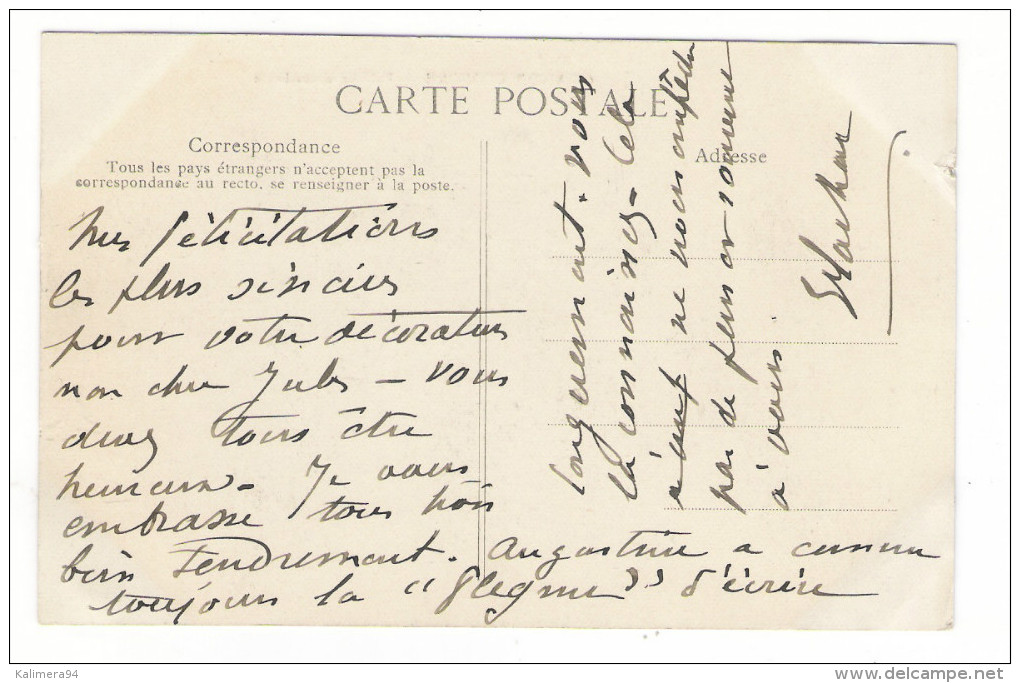 CARTE POSTALE
Correspondance
Tous les pays étrangers n'acceptent pas la
correspondance au recto, se renseigner à la poste.
Adresse
Mes félicitations
les plus sincères
pour votre décoration
mon cher Jules — Vous
devez tous être
heureux — Je vous
embrasse tous trois
bien Tendrement. Augustine a comme
toujours la "flegme" d'écrire
longuement. vous
la connaissez — Cela
ne nous empêche
pas de penser souvent
à vous
Kalimera94
www.delcampe.net